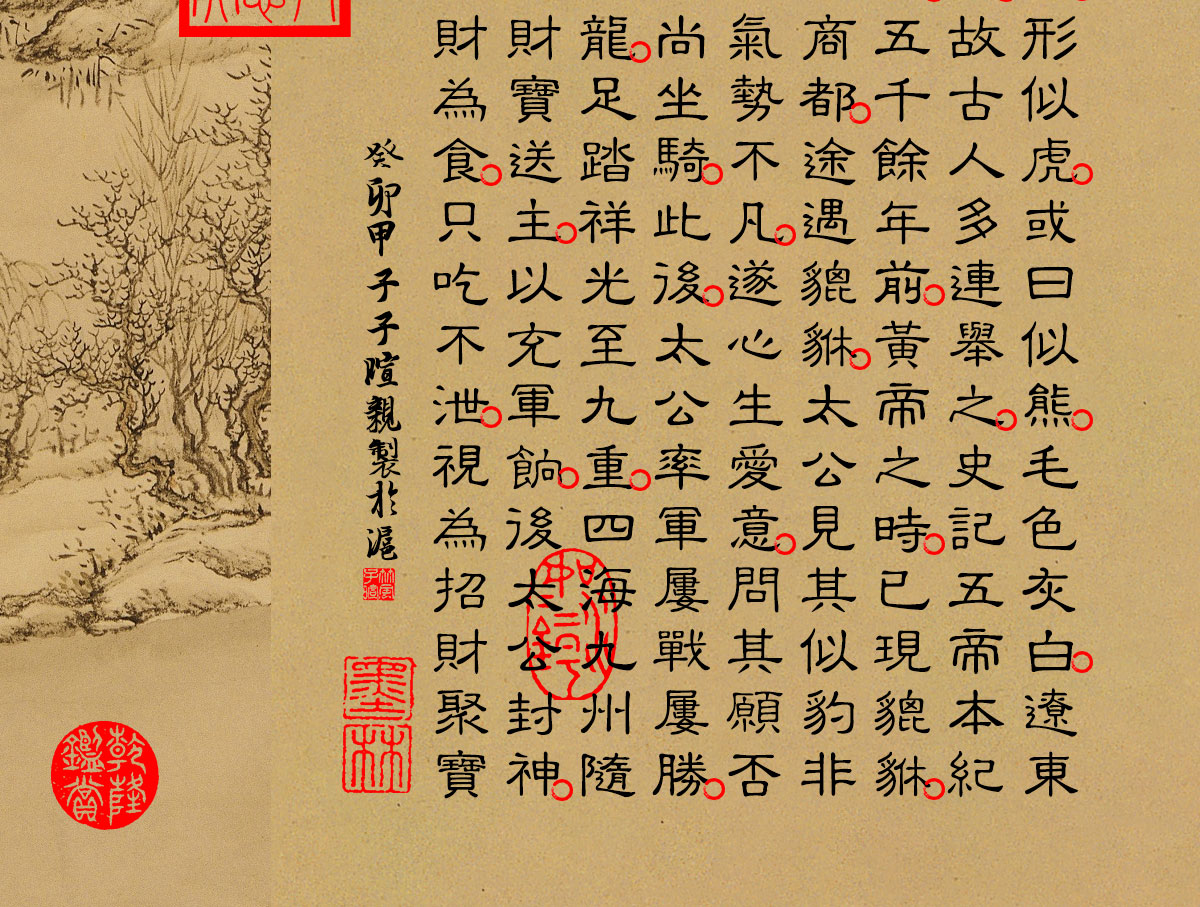 形似虎。或曰似熊。毛色灰白。遼東
故古人多連舉之。史記五帝本紀
五千餘年前。黃帝之時。已現貔貅。
商都。途遇貔貅。太公見其似豹非
氣勢不凡。遂心生愛意。問其願否
尚坐騎。此後。太公率軍屢戰屢勝。
龍。足踏祥光至九重。四海九州隨
財寶送主。以充軍餉。後太公封神。
財為食。只吃不泄。視為招財聚寶
癸卯甲子子暄親製於滬
墨林
乾隆鑑賞